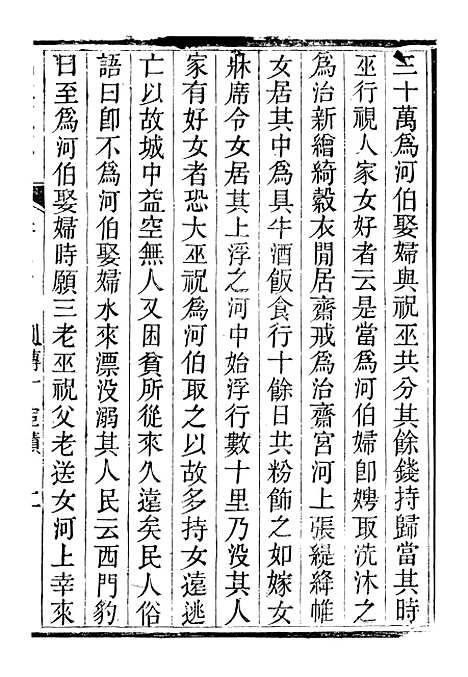 三十萬爲河伯娶婦與祝巫共分其餘錢持歸當其時
巫行視人家女好者云是當爲河伯婦卽娉取洗沐之
爲治新繒綺縠衣閒居齋戒爲治齋宮河上張緹絳帷
女居其中爲具牛酒飯食行十餘日共粉飾之如嫁女
牀席令女居其上浮之河中始浮行數十里乃没其人
家有好女者恐大巫祝爲河伯取之以故多持女遠逃
亡以故城中益空無人又困貧所從來久遠矣民人俗
語曰卽不爲河伯娶婦水來漂没溺其人民云西門豹
曰至爲河伯娶婦時願三老巫祝父老送女河上幸來